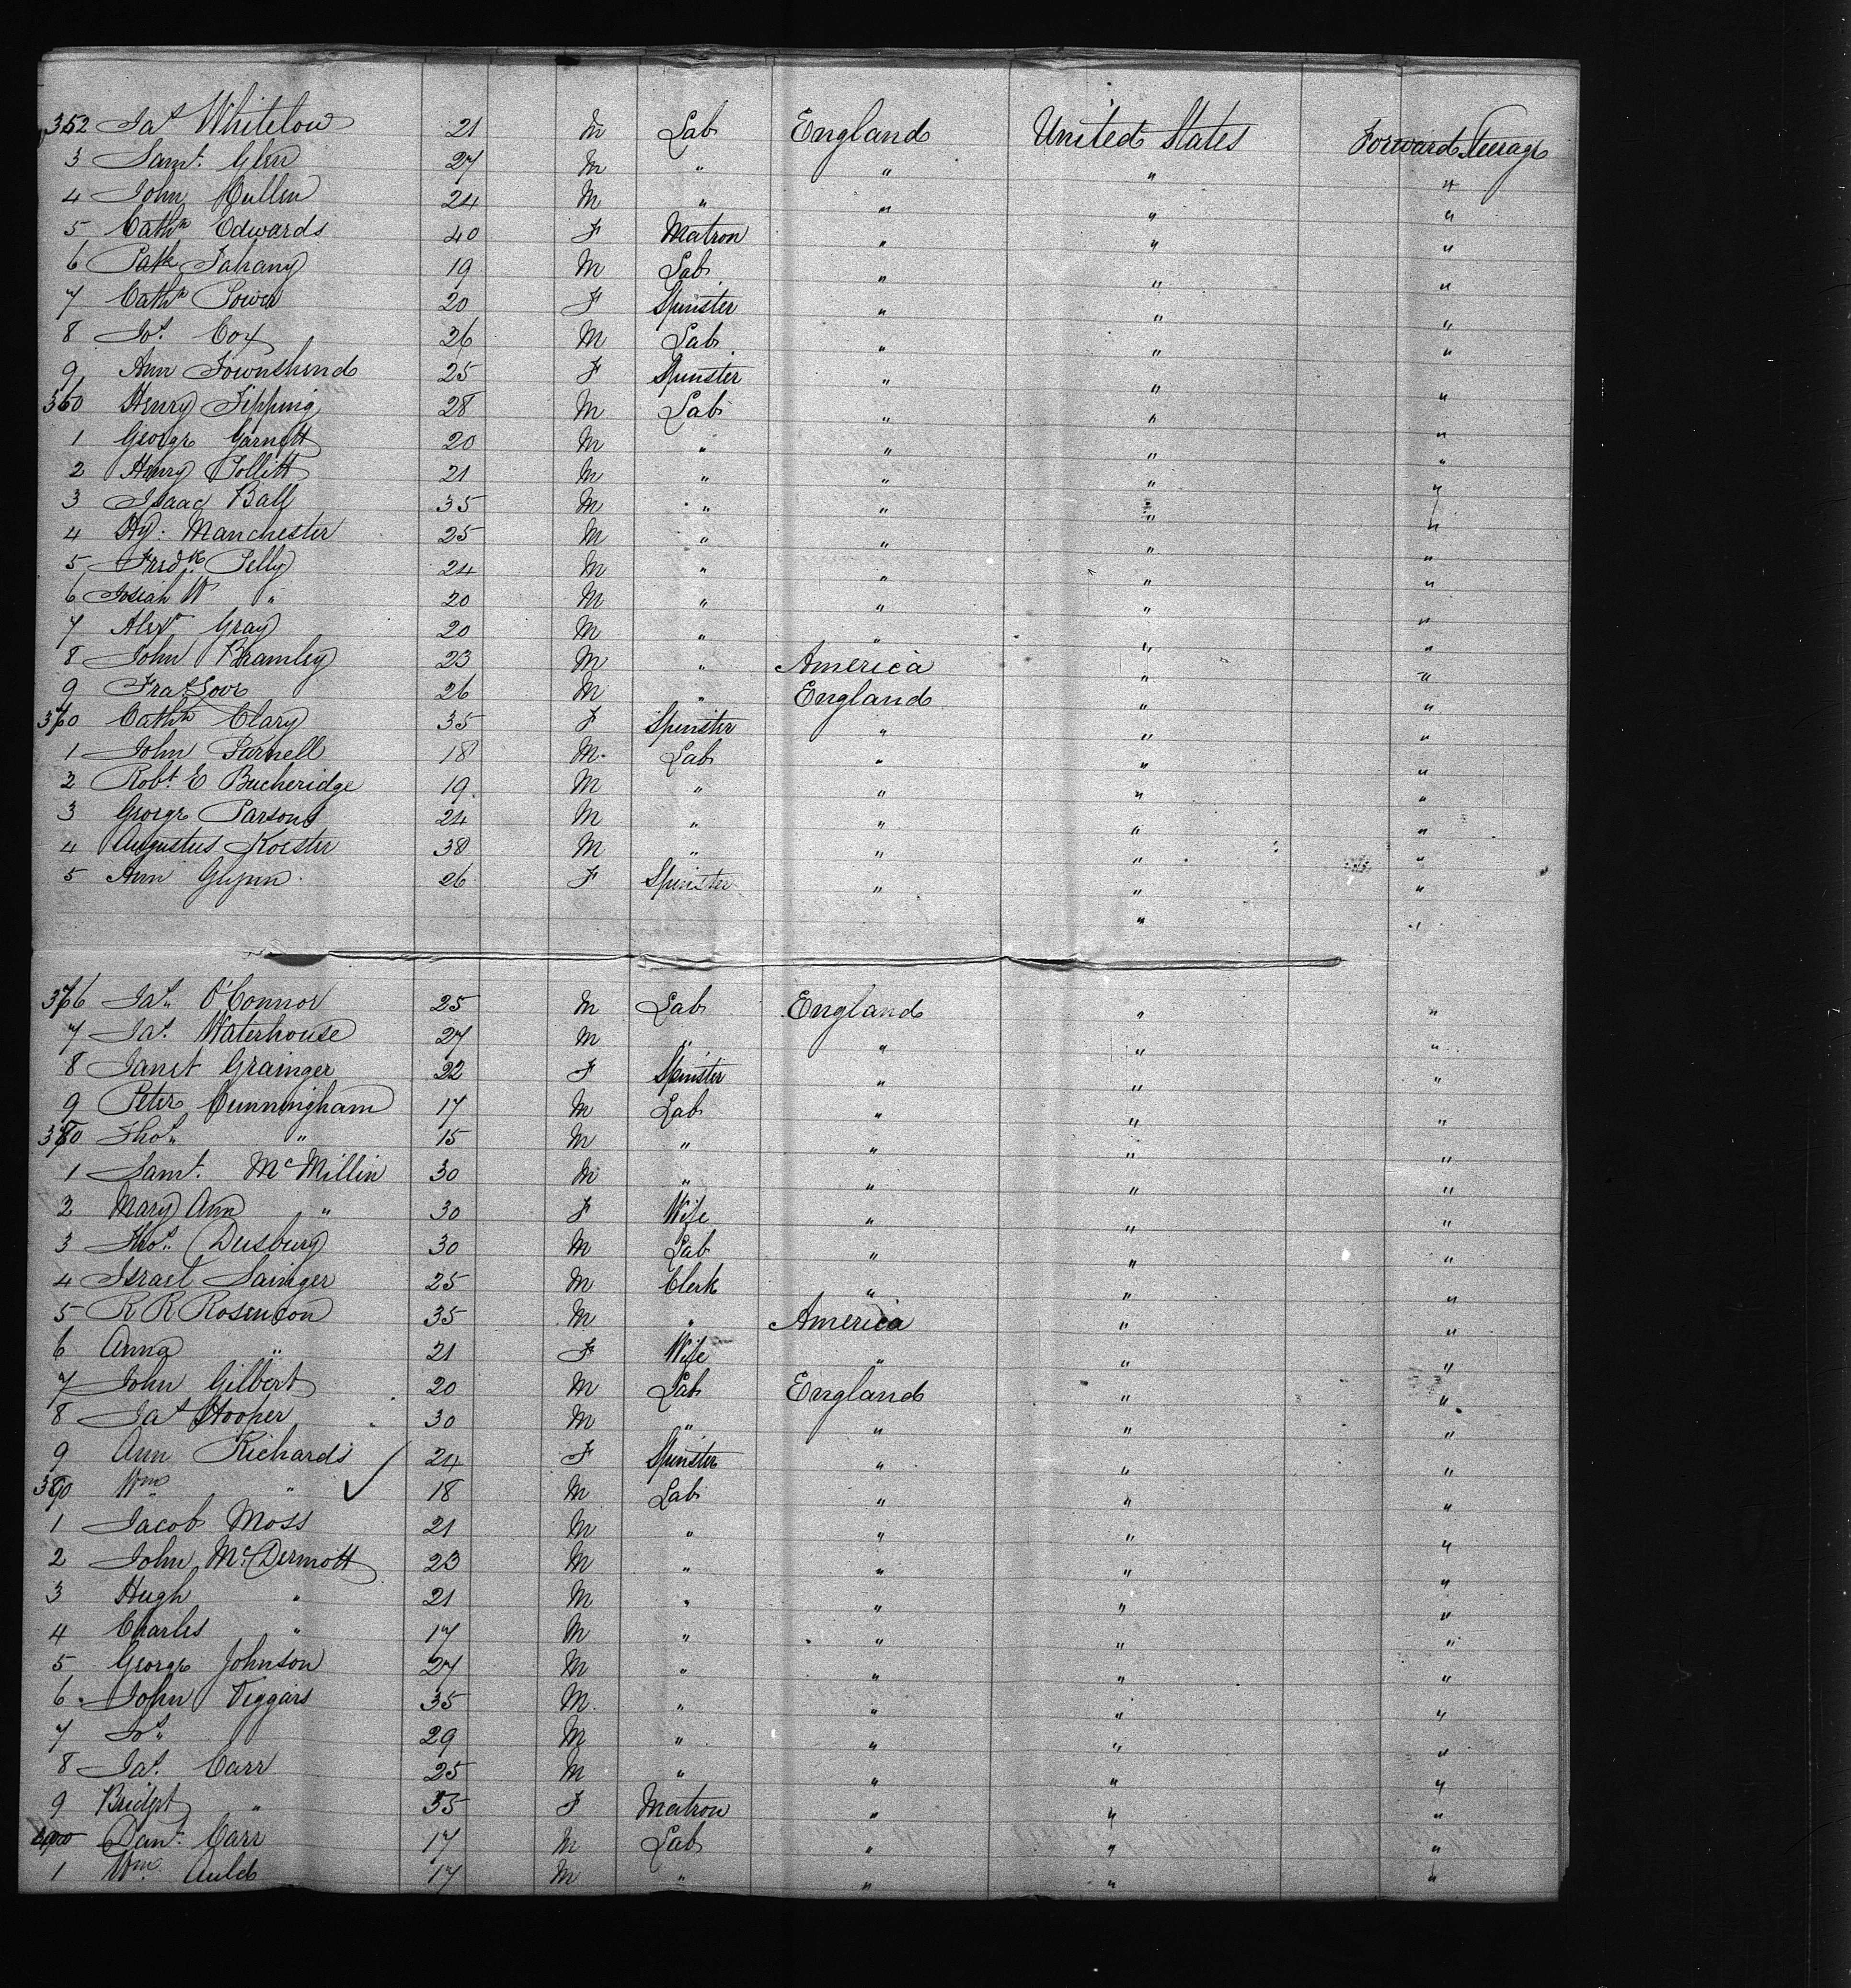 352 Jas Whitelow 21 M Lab England United States Forward Steerage
3 Saml. Glen 27 M " " " "
4 John Cullen 24 M " " " "
5 Cathn Edwards 40 F Matron " " "
6 Patk Fahany 19 M Lab " " "
7 Cathn Power 20 F Spinster " " "
8 Jos. Cox 36 M Lab " " "
9 Ann Townshend 25 F Spinster " " "
360 Henry Tipping 28 M Lab " " "
1 George Garnett 20 M " " " "
2 Henry Pollitt 21 M " " " "
3 Isaac Ball 35 M " " " "
4 Hy: Manchester 25 M " " " "
5 Fredk Pelly 24 M " " " "
6 Josiah W " 20 M " " " "
7 Alexr Gray 20 M " " " "
8 John Bramley 23 M " America " "
9 Fras Love 26 M " England " "
370 Cathn Clary 35 F Spinster " " "
1 John Parnell 18 M. Lab " " "
2 Robt. E Bucheridge 19. M " " " "
3 George Parsons 24 M " " " "
4 Augustus Koester 38 M " " " "
5 Ann Glynn 26 F Spinster " " "
" "
376 Jas. O'Connor 25 M Lab England " "
7 Jas. Waterhouse 27 M " " " "
8 Janet Grainger 22 F Spinster " " "
9 Peter Cunningham 17 M Lab " " "
380 Thos. " 15 M " " " "
1 Saml. McMillin 30 M " " " "
2 Mary Ann " 30 F Wife " " "
3 Thos. Duesbury 30 M Lab " " "
4 Israel Sainger 25 M Clerk " " "
5 R R Rosendon 35 M " America " "
6 Anna " 21 F Wife " " "
7 John Gilbert 20 M Lab England " "
8 Jas Hooper 30 M " " " "
9 Ann Richards 24 F Spinster " " "
390 Wm " 18 M Lab " " "
1 Jacob Moss 21 M " " " "
2 John McDermott 23 M " " " "
3 Hugh " 21 M " " " "
4 Charles " 17 M " " " "
5 George Johnson 27 M " " " "
6. John Viggars 35 M. " " " "
7 Jos. 29 M " " " "
8 Jas. Carr 25 M " " " "
9 Bridget " 35 F Matron " " "
400 Danl. Carr 17 M Lab " " "
1 Wm. Auld 17 M " " " "